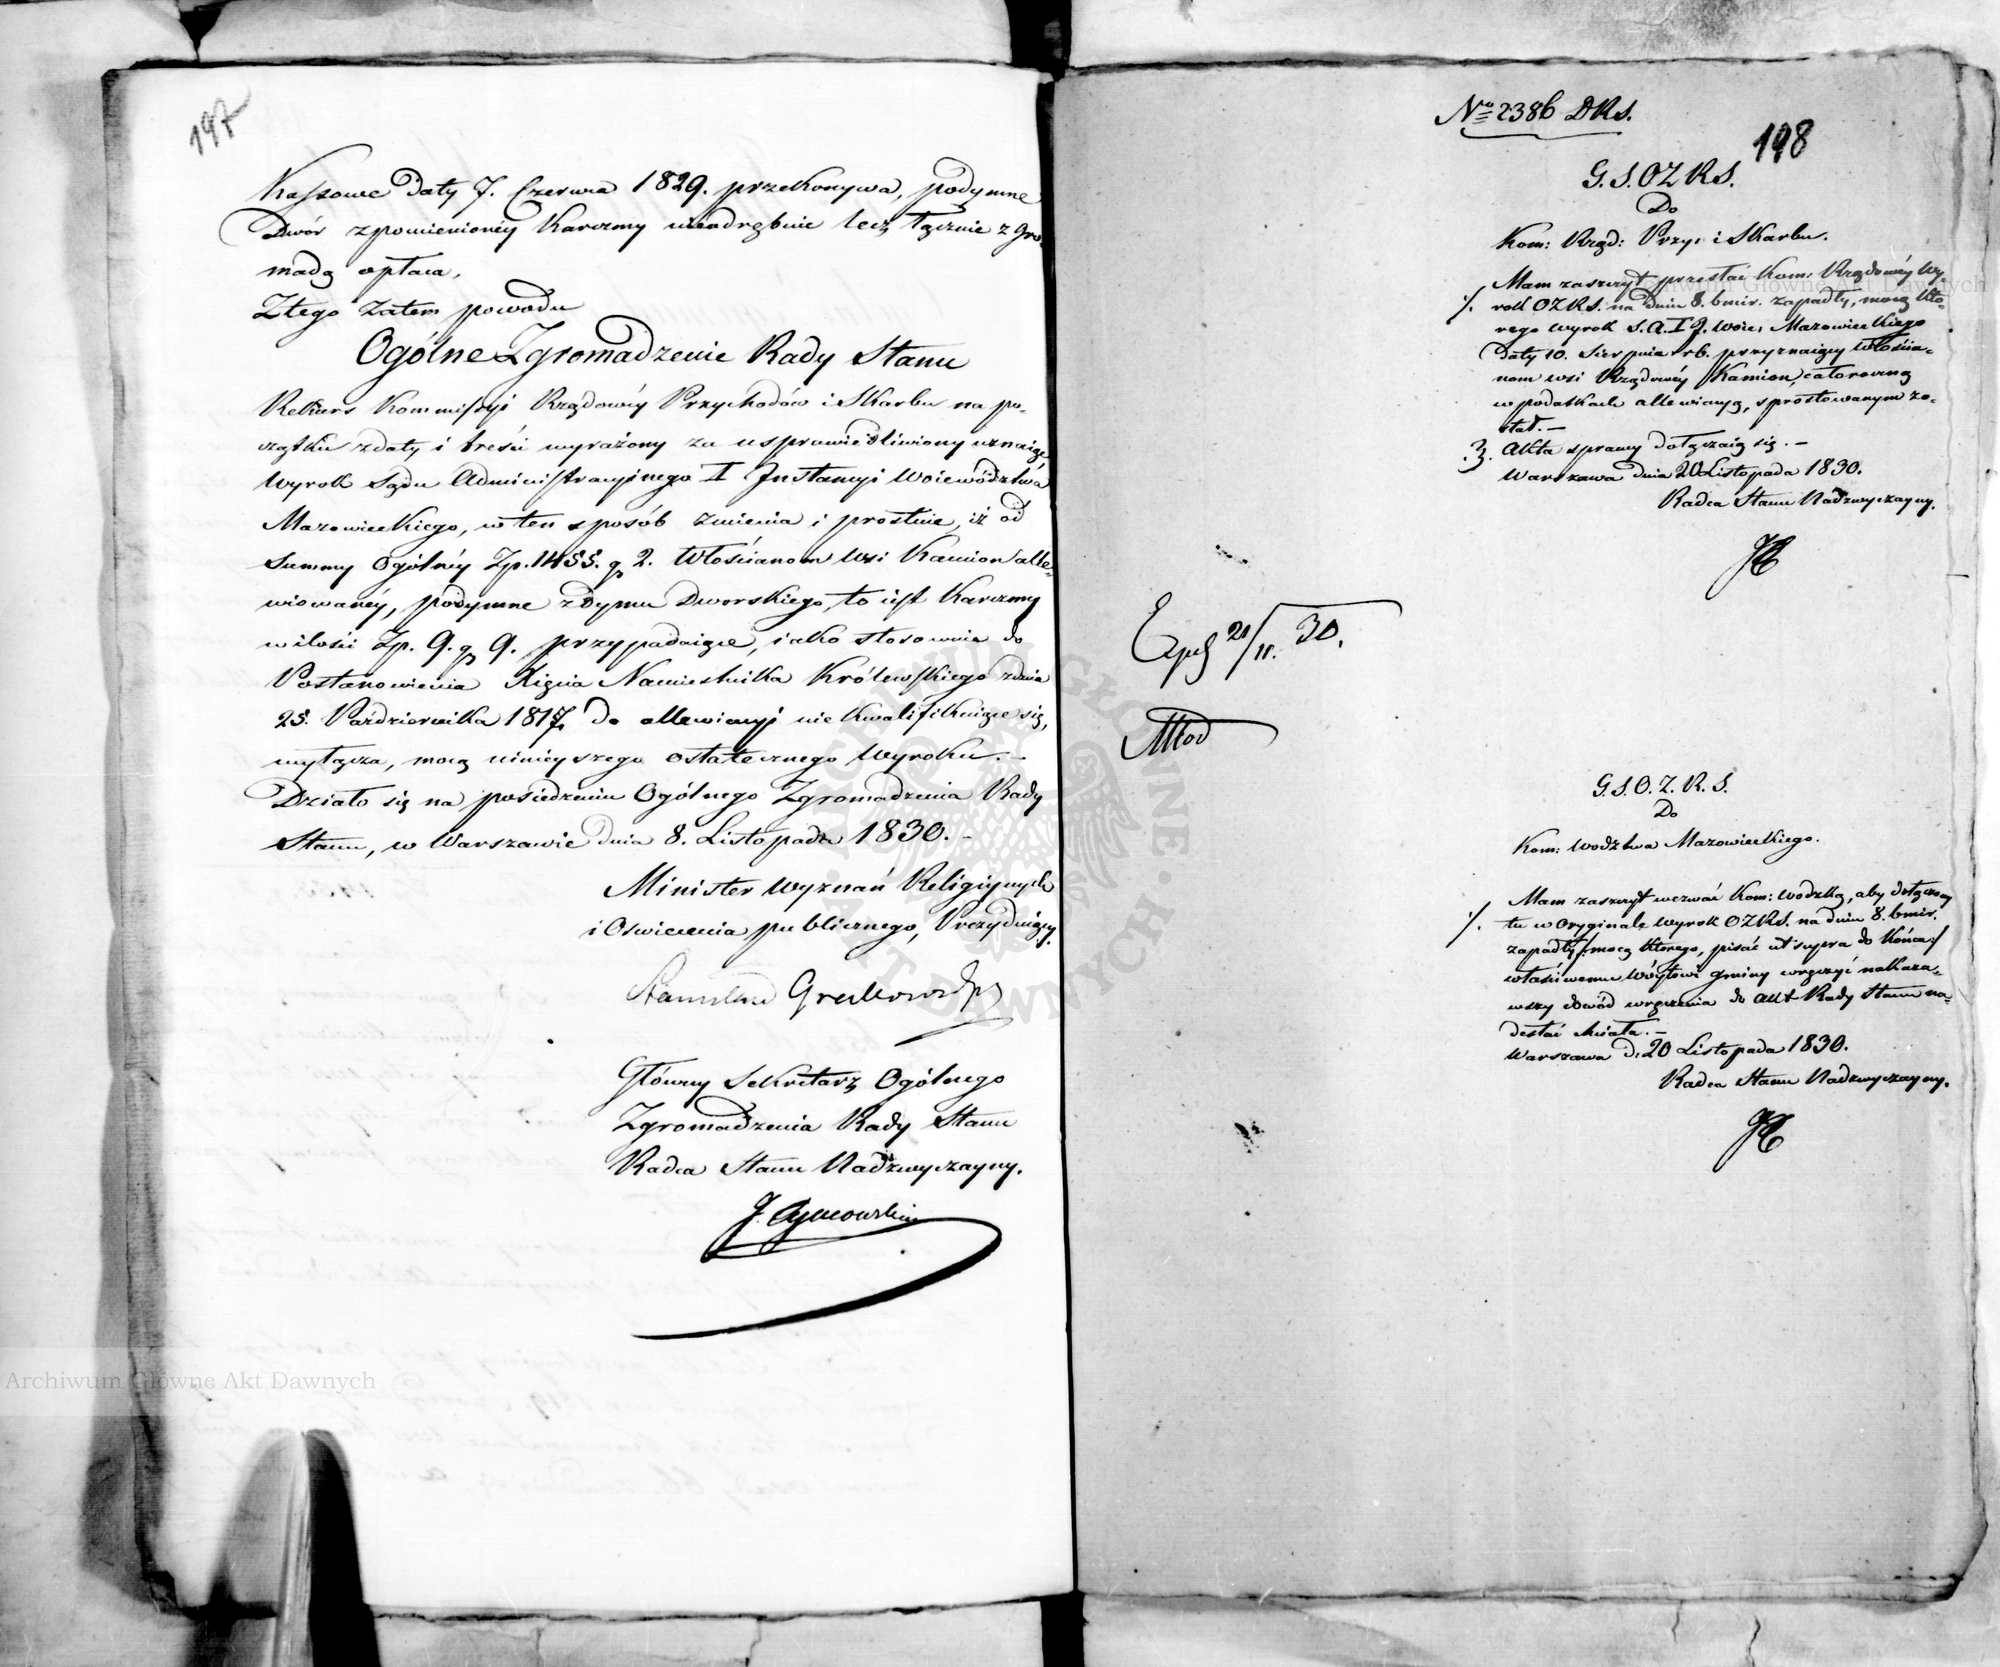 197
Kassowe daty 7. Czerwca 1829. przekonywa, podymne
Dwór z pomienionéy Karczmy nieodrębnie lecz łącznie z gro-
madą opłaca,
Z tego zatem powodu
Ogólne Zgromadzenie Rady Stanu
Rekurs Kommissyi Rządowéy Przychodów i Skarbu na po-
czątku z daty i treści wyrażony za usprawiedliwiony uznaiąc
Wyrok Sądu Administracyjnego I Instancyi Województwa
Mazowieckiego, w ten sposób zmienia i prostuie, iż od
Summy Ogólnéy Zp. 1455. g 2. Włościanom Wsi Kamion alle-
wiowanéy, podymne z Dymu Dworskiego, to iest Karczmy
w ilości Zp. 9. g 9. przypadaiące, iako stosownie do
Postanowienia Xięcia Namiestnika Królewskiego z dnia
25. Października 1817. do allewiacyi nie kwalifikuiące się,
wyłącza, mocą ninieyszego ostatecznego Wyroku. —
Działo się na posiedzeniu Ogólnego Zgromadzenia Rady
Stanu, w Warszawie dnia 8. Listopada 1830. —
Minister Wyznań Religiynych
i Oswiecenia publicznego, Prezyduiący.
Stanisław Grabowski
Główny Sekretarz Ogólnego
Zgromadzenia Rady Stanu
Radca Stanu Nadzwyczayny.
No 2386 DRS.
198
G. S. OZRS.
Do
Kom: Rząd: Przy: i Skarbu.
Mam zaszczyt przesłać Kom: Rządowéy Wy-
./. rok OZRS. na dniu 8. bmir. zapadły, mocą któ-
rego wyrok S. A. I J. Woie: Mazowieckiego
daty 10. Sierpnia rb. przyznaiący Włościa-
nom wsi Rządowéy Kamion, całoroczną
w podatkach allewiacyą, sprostowanym zo-
stał. —
.3. Akta sprawy dołączaią się. —
Warszawa dnia 20 Listopada 1830.
Radca Stanu Nadzwyczayny.
Exped 21/11. 30.
G. S. O. Z. R. S.
Do
Kom: Wodztwa Mazowieckiego.
Mam zaszczyt wezwać Kom: Wodzką, aby dołączony
./. tu w Oryginale Wyrok OZRS. na dniu 8. bmir.
zapadły /: mocą którego, pisać ut supra do końca :/
właściwemu Wóytowi gminy wręczyć nakaza-
wszy dowód wręczenia do Akt Rady Stanu na-
desłać chciała. —
Warszawa d. 20 Listopada 1830.
Radca Stanu Nadzwyczayny.
Archiwum Główne Akt Dawnych
Archiwum Główne Akt Dawnych
ARCHIWUM GŁÓWNE AKT DAWNYCH